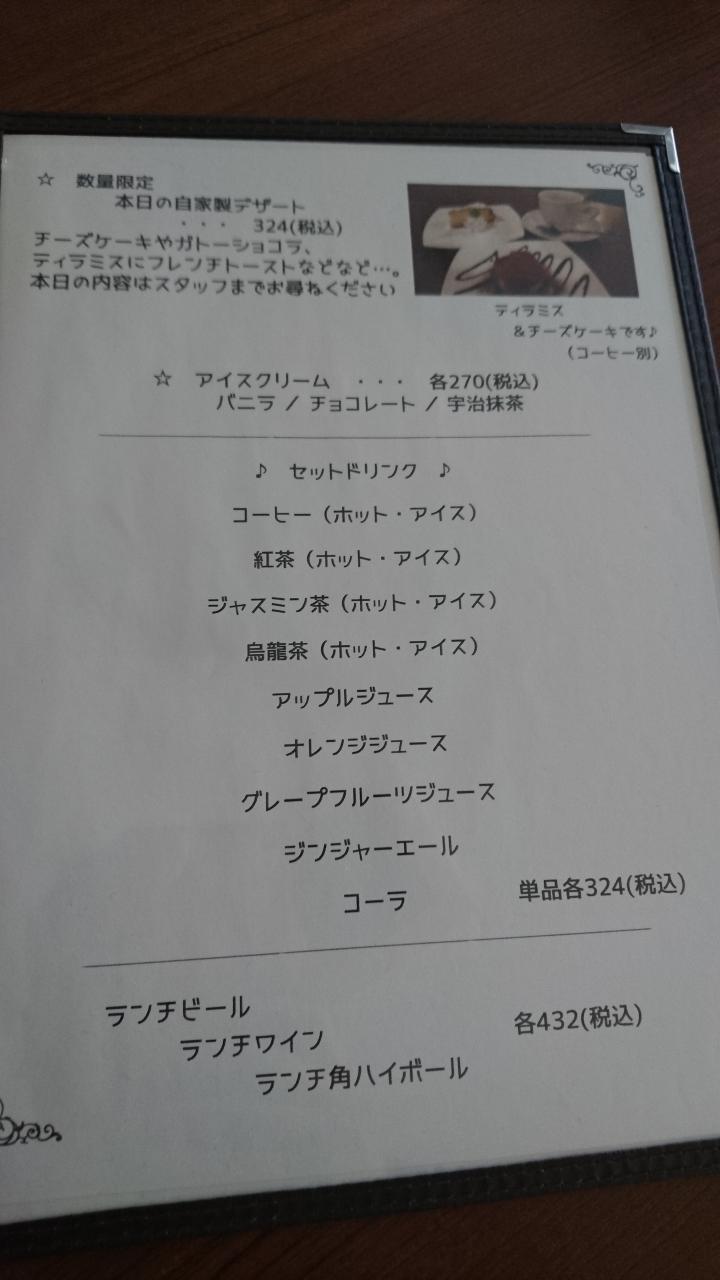 ☆ 数量限定
本日の自家製デザート
・・・ 324(税込)
チーズケーキやガトーショコラ、
ティラミスにフレンチトーストなどなど…。
本日の内容はスタッフまでお尋ねください
ティラミス
&チーズケーキです♪
(コーヒー別)
☆ アイスクリーム ・・・ 各270(税込)
バニラ / チョコレート / 宇治抹茶
♪ セットドリンク ♪
コーヒー(ホット・アイス)
紅茶(ホット・アイス)
ジャスミン茶(ホット・アイス)
烏龍茶(ホット・アイス)
アップルジュース
オレンジジュース
グレープフルーツジュース
ジンジャーエール
コーラ 単品各324(税込)
ランチビール
ランチワイン 各432(税込)
ランチ角ハイボール